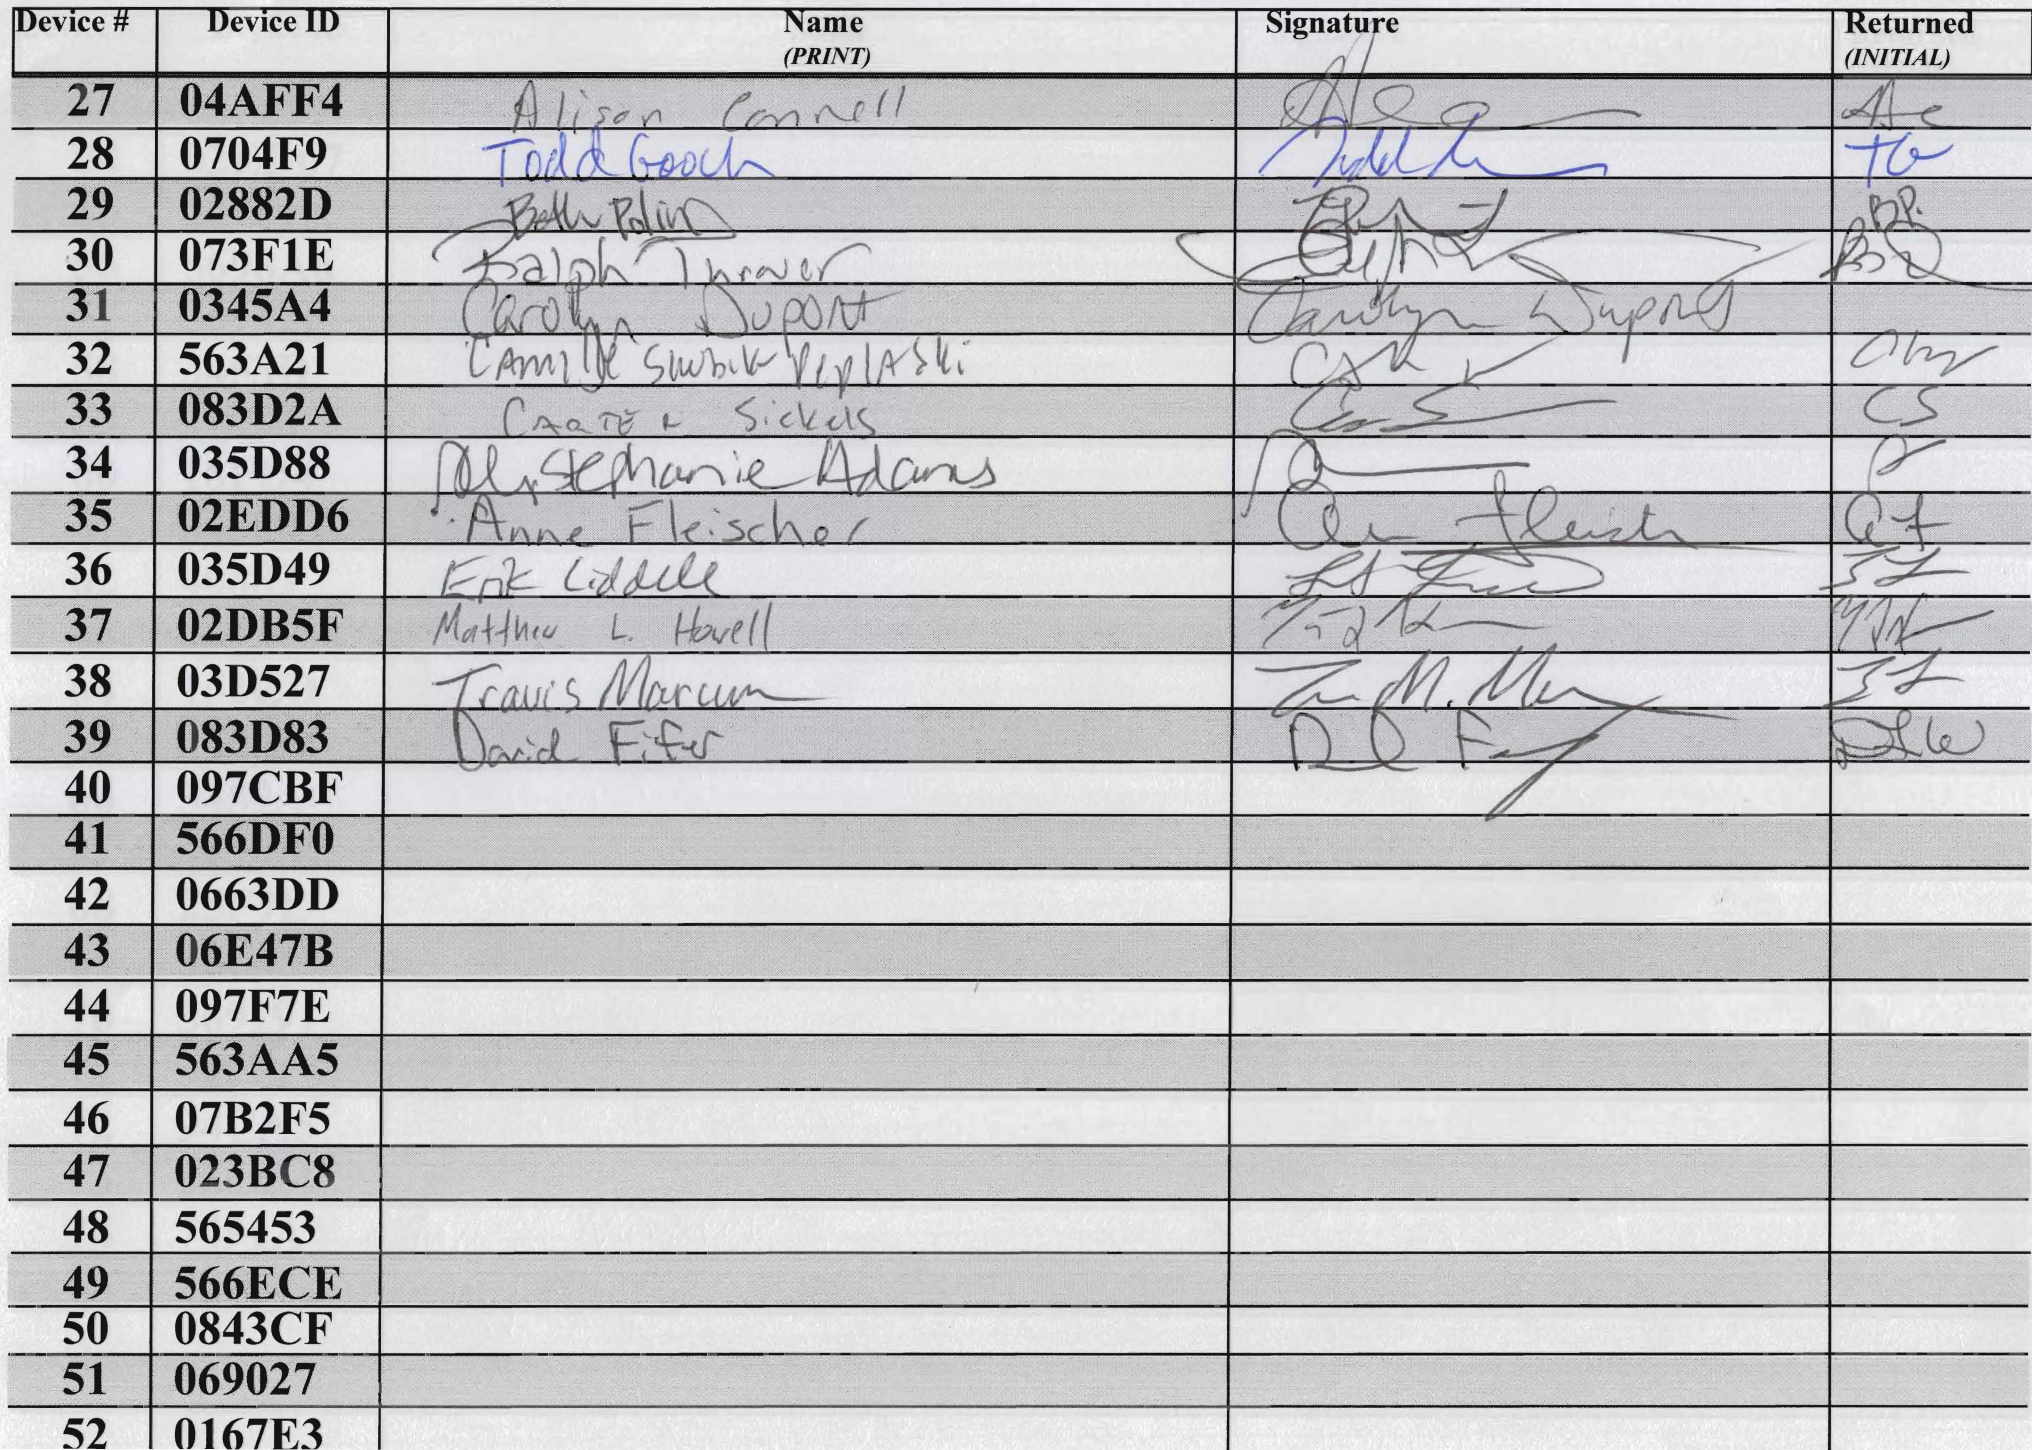 Device # Device ID Name Signature Returned
(PRINT) (INITIAL)
27 04AFF4 Alison Connell
28 0704F9 Todd Gooch TG
29 02882D Beth Polin BP.
30 073F1E Ralph Thrower
31 0345A4 Carolyn Dupont Carolyn Dupont
32 563A21 Camille Skubik Peplaski
33 083D2A CARTER Sickels CS
34 035D88 Stephanie Adams
35 02EDD6 Anne Fleischer
36 035D49 Erik Liddell
37 02DB5F Matthew L. Howell
38 03D527 Travis Marcum
39 083D83 David Fifer
40 097CBF
41 566DF0
42 0663DD
43 06E47B
44 097F7E
45 563AA5
46 07B2F5
47 023BC8
48 565453
49 566ECE
50 0843CF
51 069027
52 0167E3